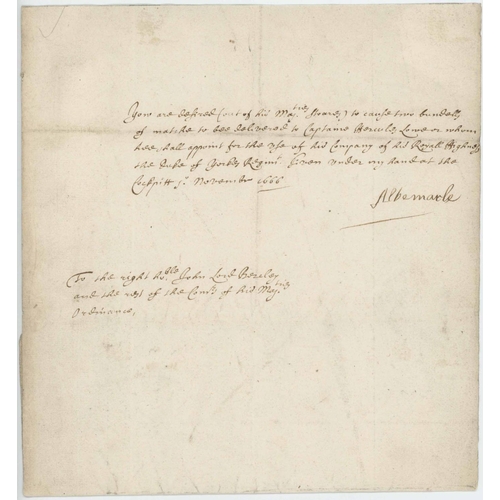 You are desired (out of his Maj.ties stoares) to cause two bundells
of matche to bee delivered to Captaine Hercules Lowe or whom
hee shall appoint for the use of his Company of his Royall Highness
the Duke of Yorkes Regimt. Given under my hand at the
Cockpitt 1o. November 1666
Albemarle
To the right hoble John Lord Berkley
and the rest of the Comrs of his Maj.ties
Ordinance,